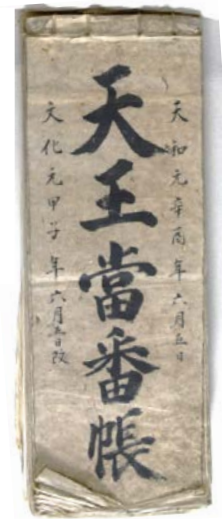 天和元辛酉年六月五日
天王當番帳
文化元甲子年六月吉日改